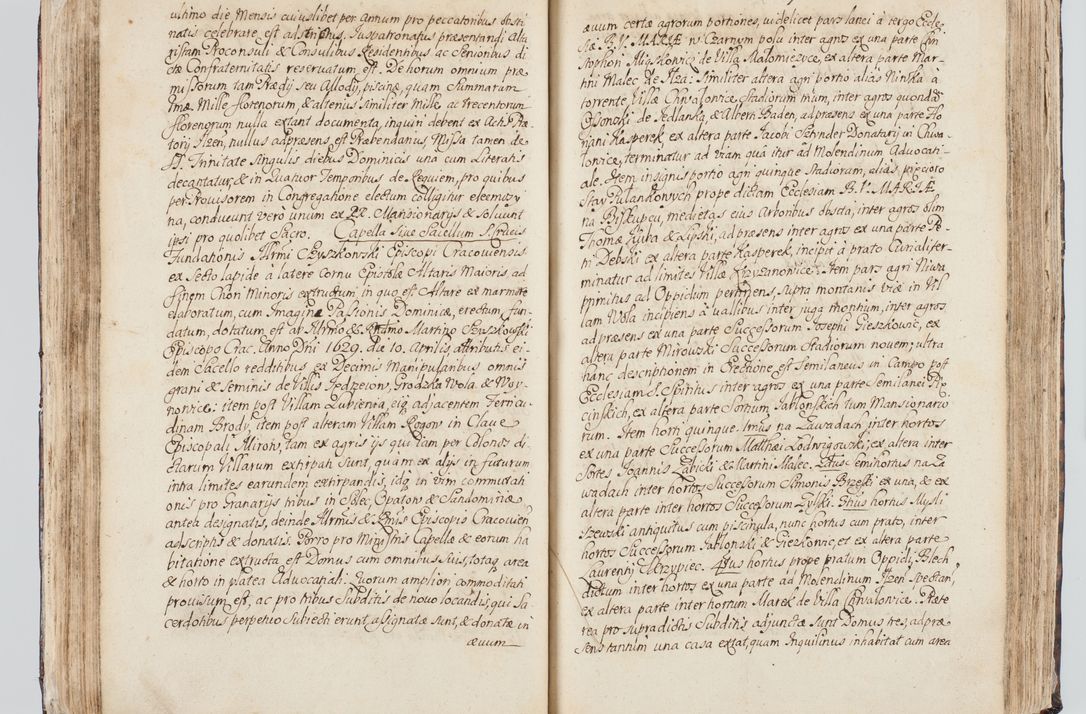 ultimo die Mensis cuiuslibet per annum pro peccatoribus obsti-
natis celebrare est adstrictus. Juspatronatus præsentandi Alta
ristam Proconsuli & Consulibus Residentibus ac Senioribus di
ctæ Confraternitatis reservatum est. De horum omnium præ
missorum tam Prædy seu Allody, piscinæ, quam Summarum
unæ Mille florenorum, & alterius Similiter Mille ac Trecentorum
florenorum nulla extant documenta, inquiri debent ex Actis Præ-
torij Ilzen, nullus ad præsens est Præbendarius, Missa tamen de
SS. Trinitate Singulis diebus Dominicis una cum Literatis
decantatur, & in Quatuor Temporibus de Requiem, pro quibus
per Provisorem in Congregatione electum colligitur eleemosy
na, conducunt vero unum ex RR. Mansionarijs & Solvunt
ipsi pro quolibet Sacro. Capella Sive Sacellum S. Crucis
Fundationis Illrmi Szyszkowski Episcopi Cracoviensis
ex Secto lapide à latere Cornu Epistolæ Altaris Maioris, ad
finem Chori Minoris extructum in quo est Altare ex marmore
elaboratum, cum Imagine Passionis Dominicæ, erectum, fun-
datum, dotatum est ab Illrmo & Rndmo Martino Szyszkowski
Episcopo Crac. Anno Dni 1629. die 10. Aprilis, attributis ei-
dem Sacello redditibus ex Decimis Manipularibus omnis
grani & Seminis de Villis Jedrzeiow, Grodzka Wola, & Woy-
nowice: item post Villam Lubienia, eiq adjacentem Ferricu
dinam Brody, item post alteram Villam Rogow in Clave
Episcopali Mirow, tam ex agris ijs qui iam per Colonos di
ctarum Villarum extirpati Sunt, quam ex alijs in futurum
intra limites earundem extirpandis, idq in vim commutati
onis pro Granarijs tribus in Solec, Opatow & Sandomiriæ
antea designatis, deinde Illrmis & Rmis Episcopis Cracovien
adscriptis & donatis. Porro pro Ministris Capellæ & eorum ha
bitatione extructa est Domus cum omnibus Suis, totaq area
& horto in platea Advocatiali. Quorum ampliori commoditati
provisum est, ac pro tribus Subditis de novo locandis, qui Sa-
cerdotibus perpetuo Subiecti erunt, assignatæ sunt, & donatæ in
ævum
ævum certæ agrorum portiones, videlicet pars lanei à tergo Eccle-
siæ B. V. MARIÆ na Czarnym polu inter agros ex una parte Chri
stophori Migskowic de Villa Małomierzyce, ex altera parte Mar-
tini Malec de Ilza. Similiter altera agri portio alias Niwka à
torrente, Villæ Chwałowice Stadiorum trium, inter agros quondam
Ossowski de Sedlanka, & Alberti Baden, ad præsens ex una parte Flo
riani Kasperek ex altera parte Jacobi Schinder Donatarij in Chwa-
łowice, terminatur ad viam quâ itur ad Molendinum Advocati-
ale. Item insignis portio agri quinque Stadiorum, alias pięcioro
Staw Pułankowych prope dictam Ecclesiam B. V. MARIÆ
na Biskupcu, medietas eius arboribus obsita, inter agros olim
Thomæ Kijtra & Lipski, ad præsens inter agros ex una parte Pe
tri Debski ex altera parte Kasperek, incipit à prato Cunaliter-
minatur ad limites Villæ Krzyzanowice. Item pars agri Niwa
primitus ad Oppidum pertinens, supra montanis viæ in Vil
lam Wola incipiens à vallibus inter juga montium, inter agros
ad præsens ex una parte Successorum Josephi Gieszkowic, ex
altera parte Mirowski Successorum Stadiorum novem; ultra
hanc descriptionem in Erectione est Semilaneus in Campo post
Ecclesiam S. Spiritus inter agros ex una parte Semilanei Ro
cinskich, ex altera parte Sortium Jabłonskich tum Mansionario
rum. Item horti quinque. Imus na Zawadach, inter hortos
ex una parte Successorum Matthæi Lodwigowski; ex altera inter
Sortes Joannis Zabicki & Martini Malec. 2dus Semihortus na Za
wadach inter hortos Successorum Simonis Brzeski ex una, & ex
altera parte inter hortos Successorum Zylski. 3tius hortus Mysli
szewski antiquitus cum piscinula, nunc hortus cum prato, inter
hortos Successorum Jabłonski & Gieszkowic, et ex altera parte
Laurentij Skrzypiec. 4tus hortus prope pratum Oppidi, Blech
dictum inter hortos ex una parte ad Molendinum Ilzen Spectan,
ex altera parte inter hortum Marek de Villa Chwałowice. Præte
rea pro supradictis Subditis adjunctæ Sunt Domus tres, ad præ
sens tantum una casa extat, quam Inquilinus inhabitat cum area